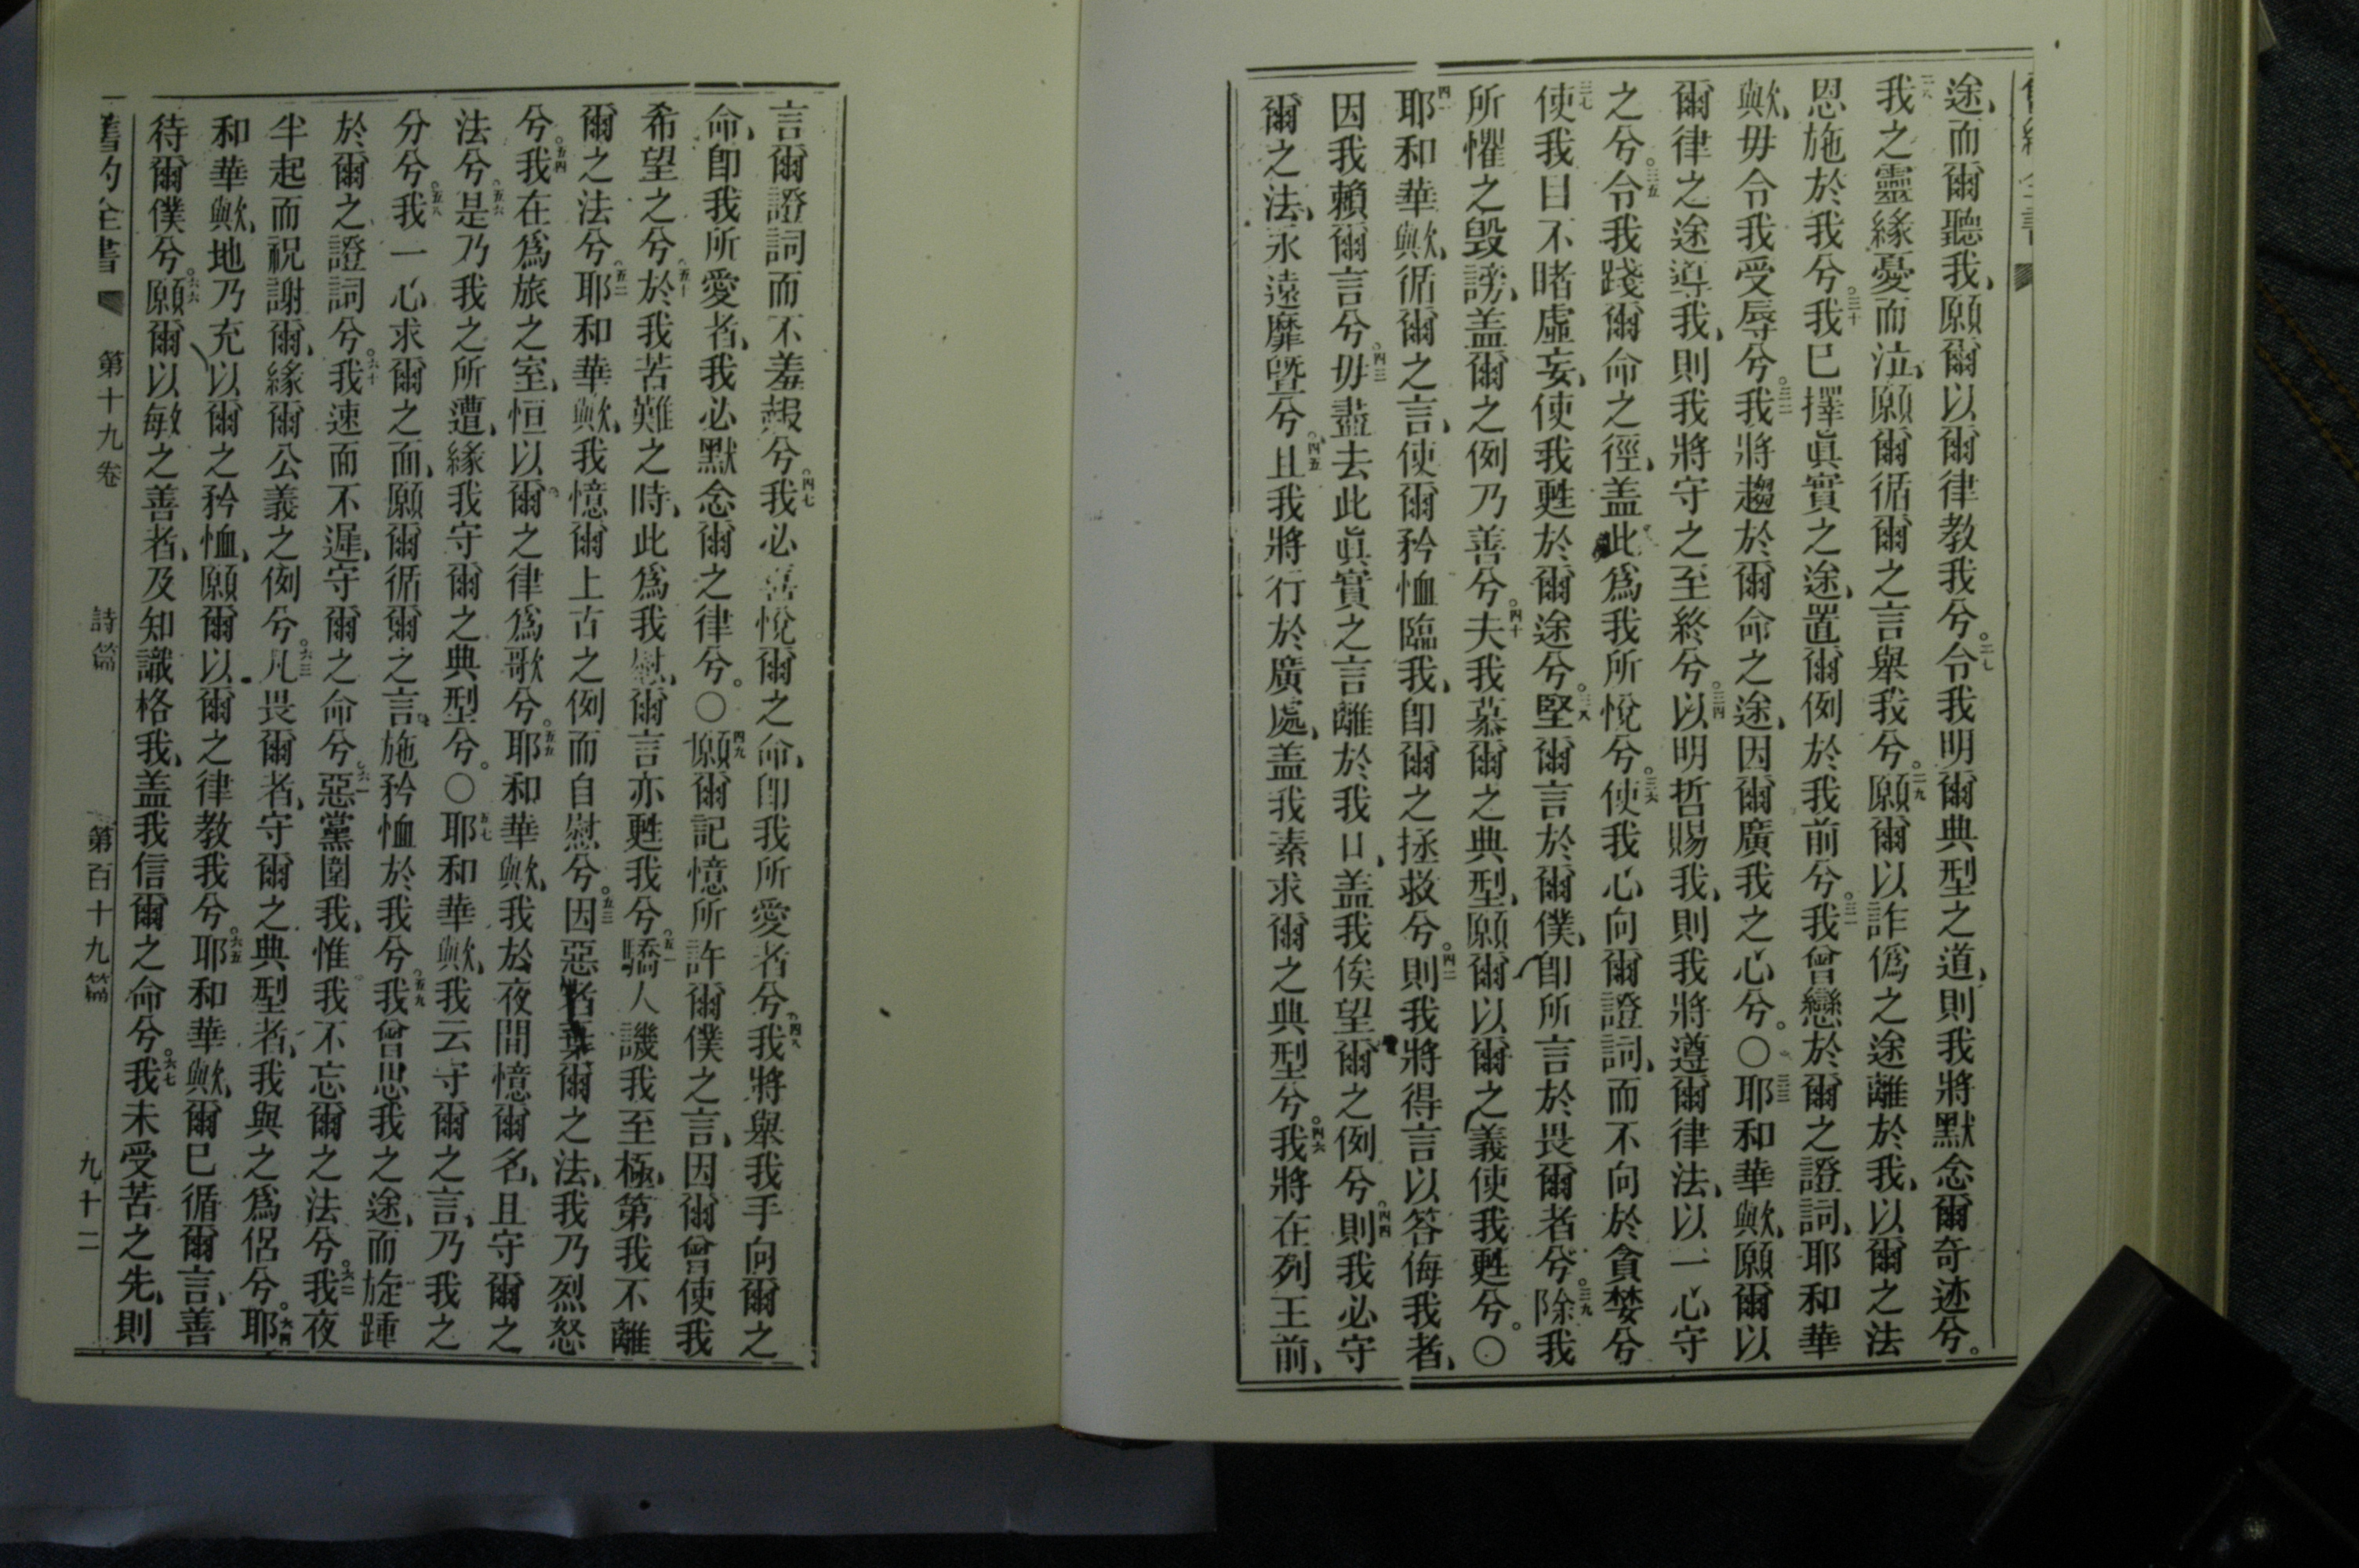 途、而爾聽我、願爾以爾律教我兮。二七令我明爾典型之道、則我將默念爾奇迹兮。
二八我之靈緣憂而泣、願爾循爾之言舉我兮。二九願爾以詐僞之途離於我、以爾之法
恩施於我兮。三十我已擇眞實之途、置爾例於我前兮。三一我曾戀於爾之證詞、耶和華
歟、毋令我受辱兮。三二我將趨於爾命之途、因爾廣我之心兮。〇三三耶和華歟、願爾以
爾律之途導我、則我將守之至終兮。三四以明哲賜我、則我將遵爾律法、以一心守
之兮。三五令我踐爾命之徑、盖此爲我所悅兮。三六使我心向爾證詞、而不向於貪婪兮
三七使我目不睹虛妄、使我甦於爾途兮。三八堅爾言於爾僕、卽所言於畏爾者兮。三九除我
所懼之毀謗、盖爾之例乃善兮。四十夫我慕爾之典型、願爾以爾之義使我甦兮。〇
四一耶和華歟、循爾之言、使爾矜恤臨我、卽爾之拯救兮。四二則我將得言以答侮我者、
因我賴爾言兮。四三毋盡去此眞實之言離於我口、盖我俟望爾之例兮。四四則我必守
爾之法、永遠靡曁兮。四五且我將行於廣處、盖我素求爾之典型兮。四六我將在列王前、
言爾證詞而不羞赧兮。四七我必喜悅爾之命、卽我所愛者兮。四八我將舉我手向爾之
命、卽我所愛者、我必默念爾之律兮。〇四九願爾記憶所許爾僕之言、因爾曾使我
希望之兮。五十於我苦難之時、此爲我慰、爾言亦甦我兮。五一驕人譏我至極、第我不離
爾之法兮。五二耶和華歟、我憶爾上古之例而自慰兮。五三因惡者棄爾之法、我乃烈怒
兮。五四我在爲旅之室、恒以爾之律爲歌兮。五五耶和華歟、我於夜間憶爾名、且守爾之
法兮。五六是乃我之所遭、緣我守爾之典型兮。〇五七耶和華歟、我云守爾之言、乃我之
分兮。五八我一心求爾之面、願爾循爾之言、施矜恤於我兮。五九我曾思我之途、而旋踵
於爾之證詞兮。六十我速而不遲、守爾之命兮。六一惡黨圍我、惟我不忘爾之法兮。六二我夜
半起而祝謝爾、緣爾公義之例兮。六三凡畏爾者、守爾之典型者、我與之爲侶兮。六四耶
和華歟、地乃充以爾之矜恤、願爾以爾之律教我兮。六五耶和華歟、爾已循爾言、善
待爾僕兮。六六願爾以敏之善者、及知識格我、盖我信爾之命兮。六七我未受苦之先、則
舊約全書 第十九卷 詩篇 第百十九篇 九十二